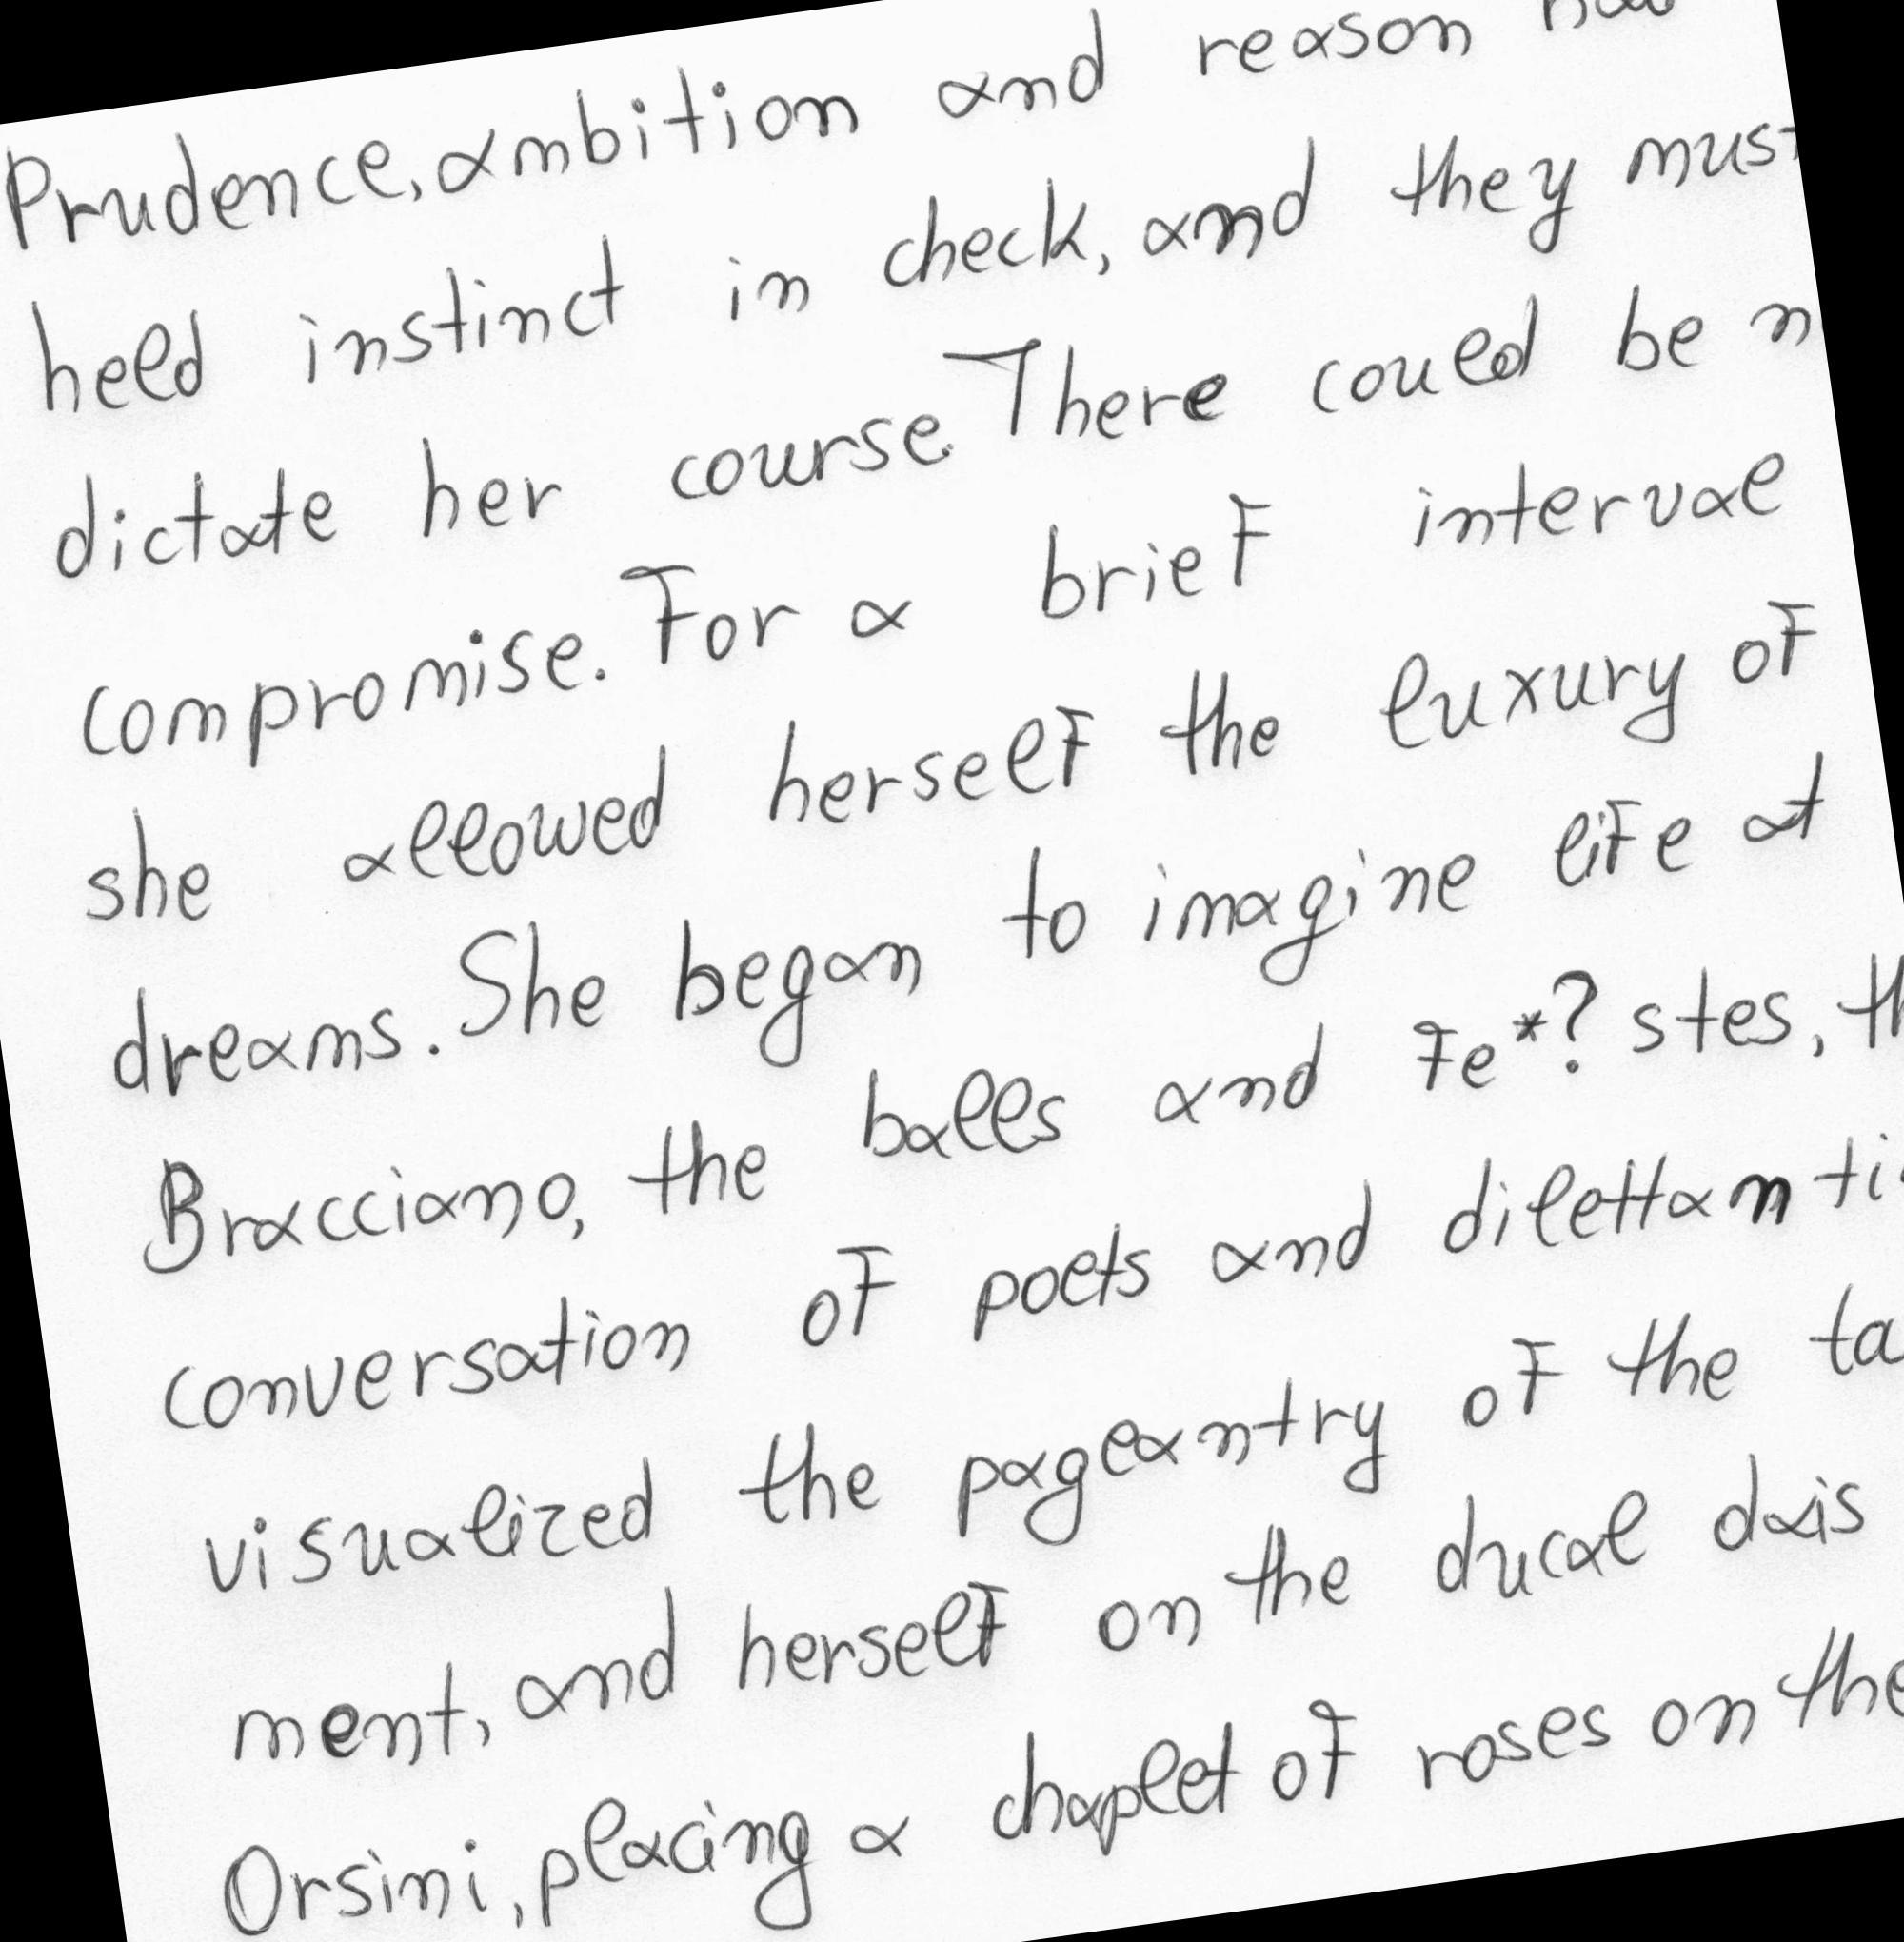 Prudence, ambition and reason
held instinct in check, and they must
dictate her course. There could be
compromise. For a brief interval
she allowed herself the luxury of
dreams. She began to imagine life at
Bracciano, the balls and fe*? stes,
conversation of poets and
visualized the pageantry of the
ment, and herself on the ducal dais
Orsini, placing a chaplet of roses on the